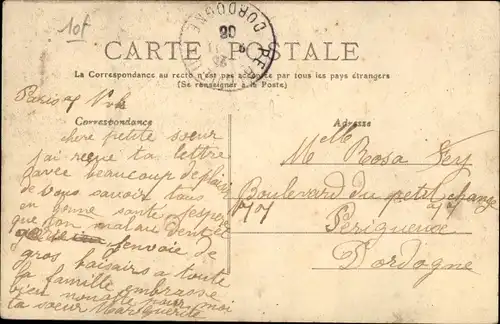 10f
CARTE POSTALE
La Correspondance au recto n'est pas acceptée par tous les pays étrangers
(Se renseigner à la Poste)
DORDOGNE
Paris
Correspondance
Adresse
chere petite sœur
j'ai reçue ta lettre
avec beaucoup de plaisir
de vous savoir tous
en bonne santé j'espere
que ton mal au dent est
j'envoie de
gros baisairs a toute
la famille embrasse
bien pour moi
ta sœur Marguerite
Melle Rosa Fey
Boulevard du petit change
77
Périgueux
Dordogne